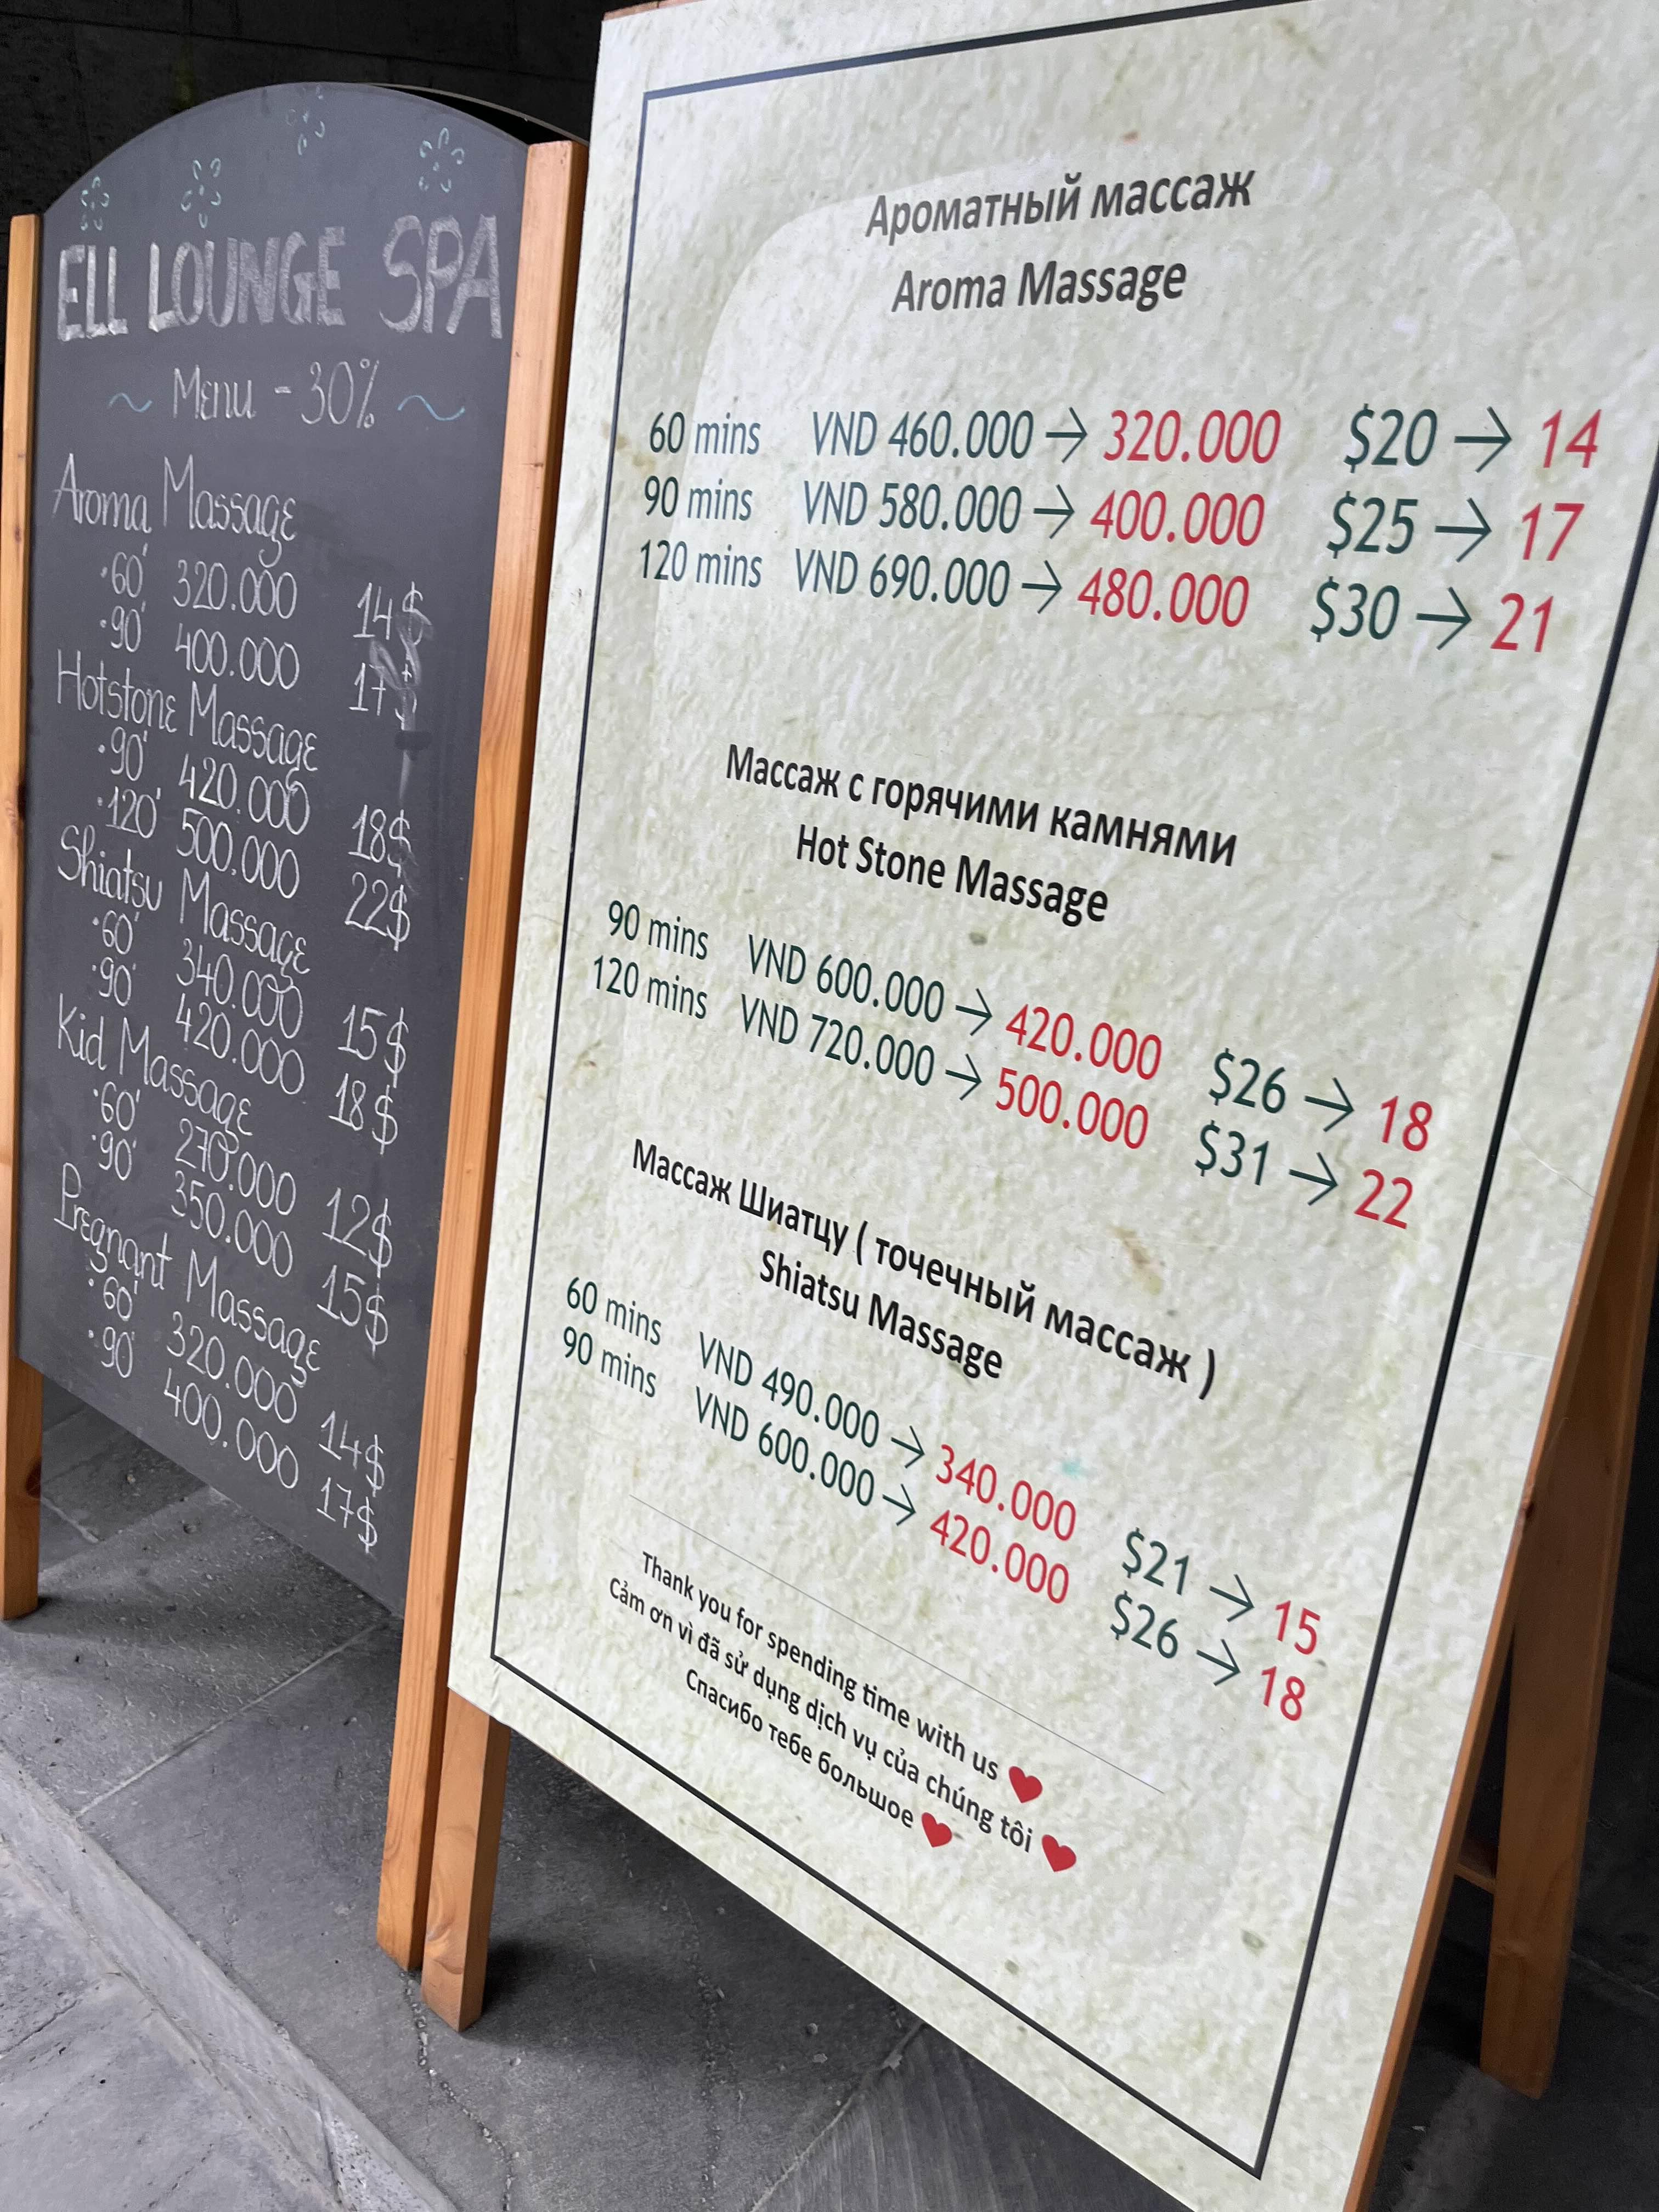 ELL LOUNGE SPA
~ Menu - 30% ~
Aroma Massage
·60' 320.000 14$
·90' 400.000 17$
Hotstone Massage
·90' 420.000 18$
·120' 500.000 22$
Shiatsu Massage
·60' 340.000 15$
·90' 420.000 18$
Kid Massage
·60' 270.000 12$
·90' 350.000 15$
Pregnant Massage
·60' 320.000 14$
·90' 400.000 17$
Ароматный массаж
Aroma Massage
60 mins VND 460.000 → 320.000 $20 → 14
90 mins VND 580.000 → 400.000 $25 → 17
120 mins VND 690.000 → 480.000 $30 → 21
Массаж с горячими камнями
Hot Stone Massage
90 mins VND 600.000 → 420.000 $26 → 18
120 mins VND 720.000 → 500.000 $31 → 22
Массаж Шиатцу ( точечный массаж )
Shiatsu Massage
60 mins VND 490.000 → 340.000 $21 → 15
90 mins VND 600.000 → 420.000 $26 → 18
Thank you for spending time with us ❤
Cảm ơn vì đã sử dụng dịch vụ của chúng tôi ❤
Спасибо тебе большое ❤